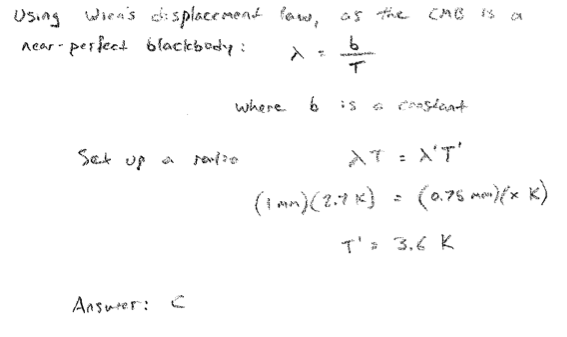 Using Wien's displacement law, as the CMB is a
near-perfect blackbody: λ = b/T
where b is a constant
Set up a ratio λT = λ'T'
(1 mm)(2.7 K) = (0.75 mm)(x K)
T' = 3.6 K
Answer: C